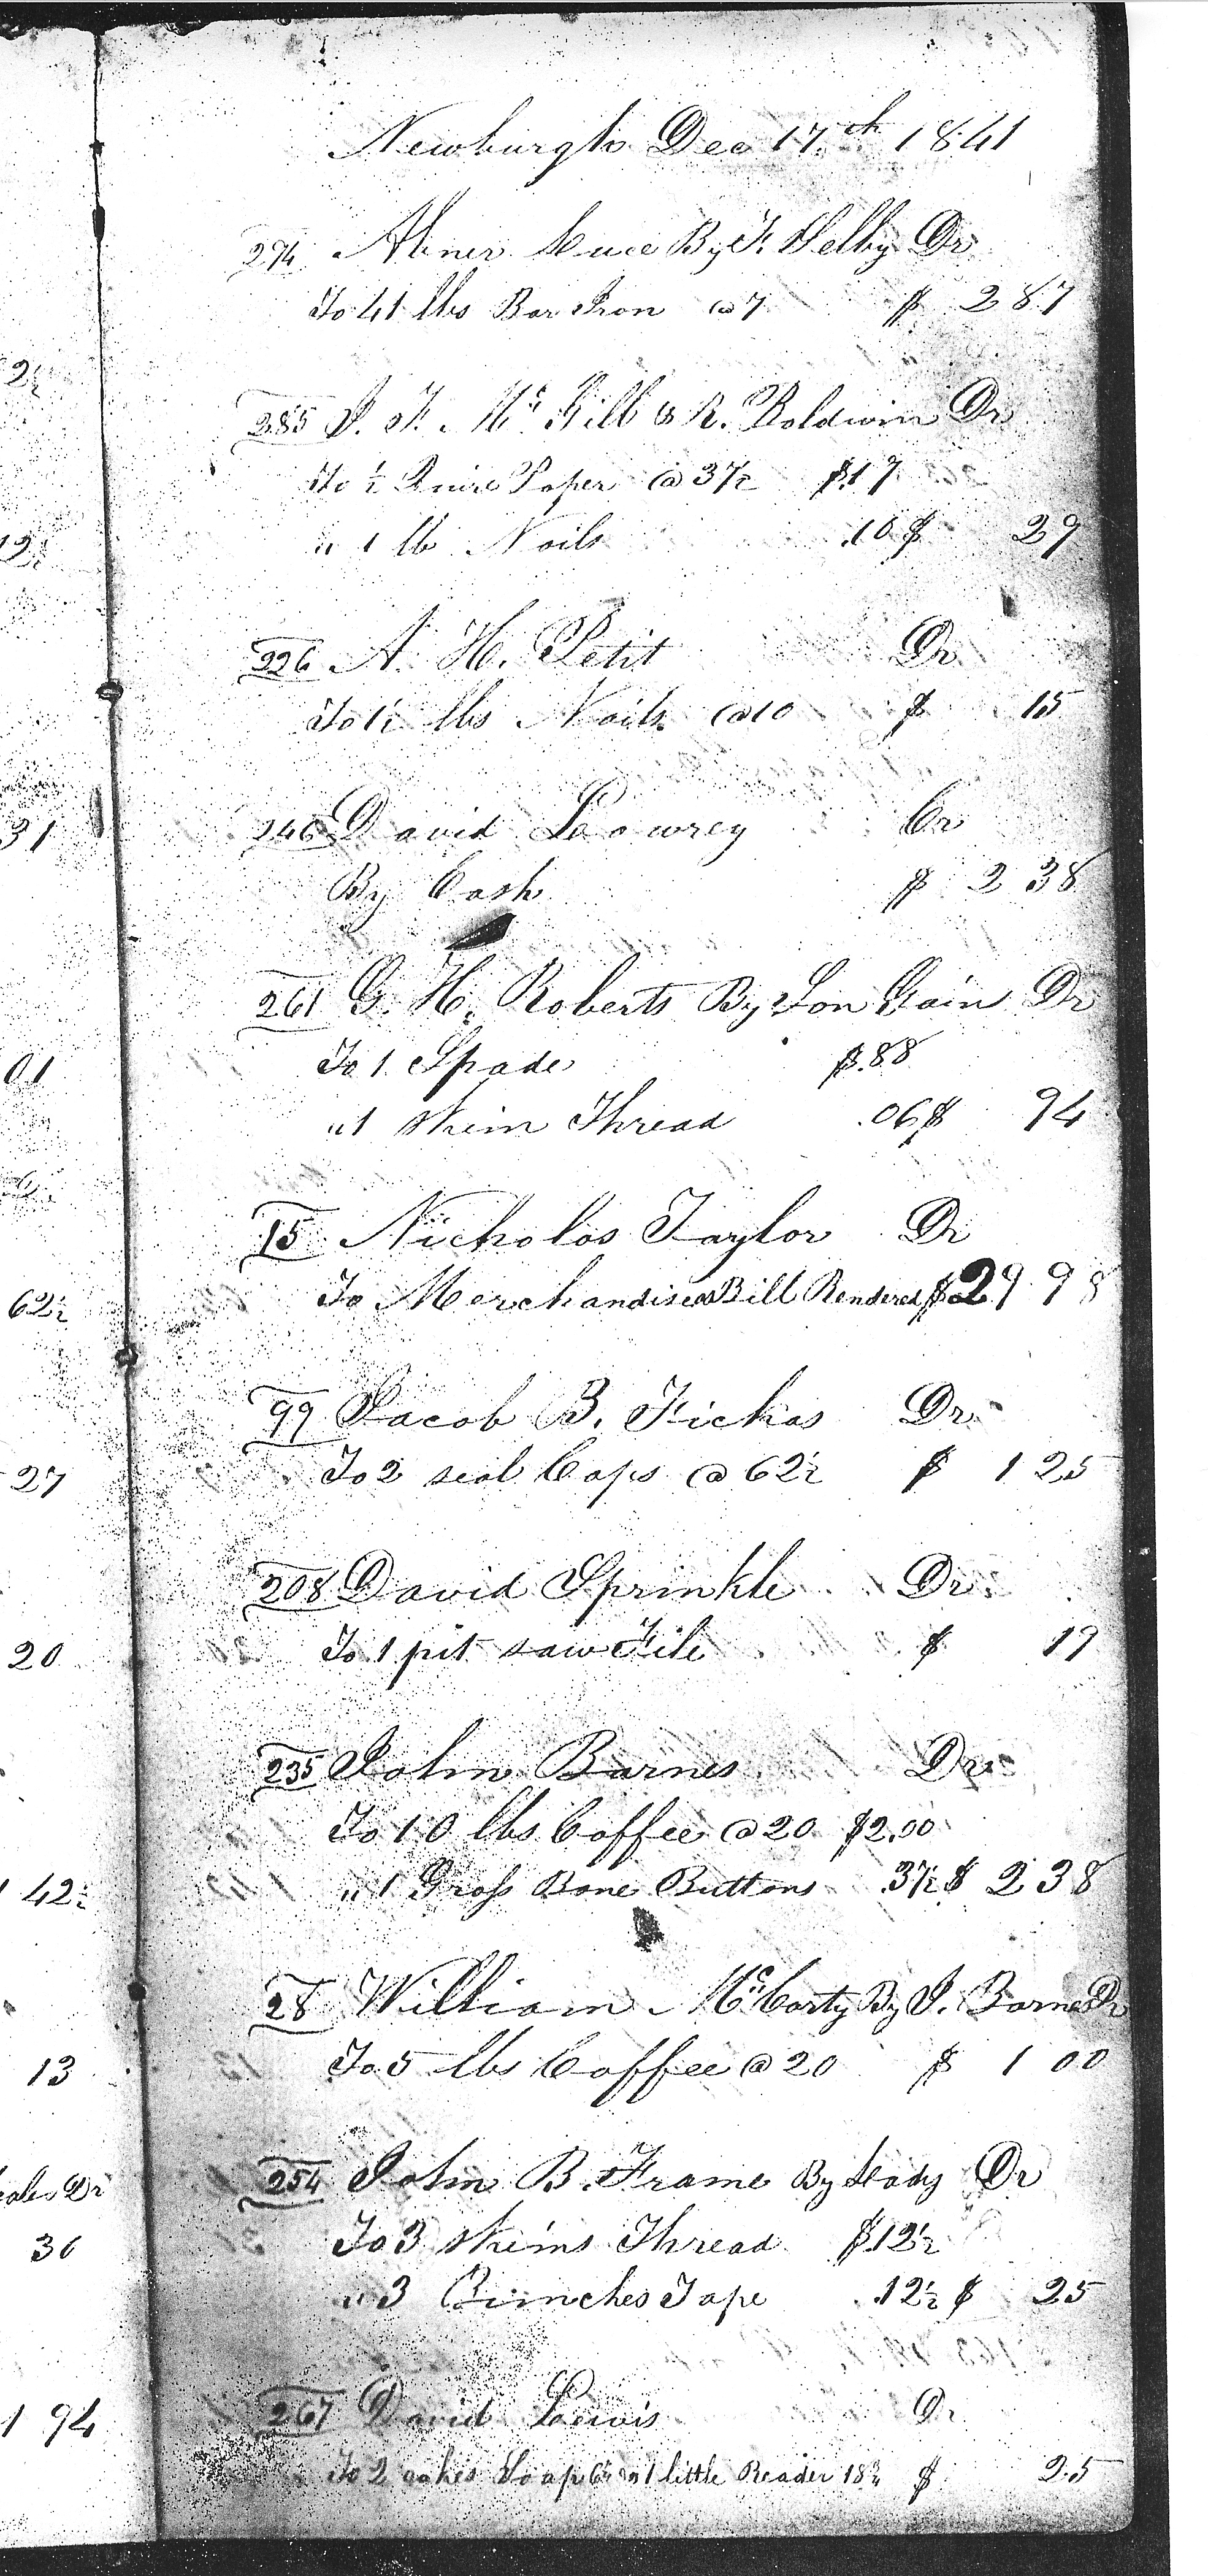 Newburgh Dec 17th 1841
274 Abner Luce By F. Selby Dr
To 41 lbs Bar Iron @ 7 $ 2 87
285 J. F. McGill & R. Baldwin Dr
To ½ Quire Paper @ 37½ $.17
" 1 lb Nails .10 $ 29
226 A. H. Petit Dr
To 1½ lbs Nails @ 10 $ 15
246 David Lowrey Cr
By Cash $ 2 38
261 G. H. Roberts By Son Gain Dr
To 1 Spade $.88
" 1 Skein Thread .06 $ 94
15 Nicholas Taylor Dr
To Merchandise as Bill Rendered $ 29 98
99 Jacob B. Fickas Dr
To 2 seal Caps @ 62½ $ 1 25
208 David Sprinkle Dr
To 1 pit saw File $ 19
235 John Barnes Dr
To 10 lbs Coffee @ 20 $2.00
" 1 Gross Bone Buttons .37½ $ 2 38
28 William McCarty By J. Barnes Dr
To 5 lbs Coffee @ 20 $ 1 00
254 John B. Frame By Lady Dr
To 3 Skeins Thread $.12½
" 3 Bunches Tape .12½ $ 25
267 David Lewis Dr
To 2 cakes Soap 6¼ " 1 little Reader 18¾ $ 25
2½
12½
31
01
62½
27
20
1 42½
13
Dr
30
1 94